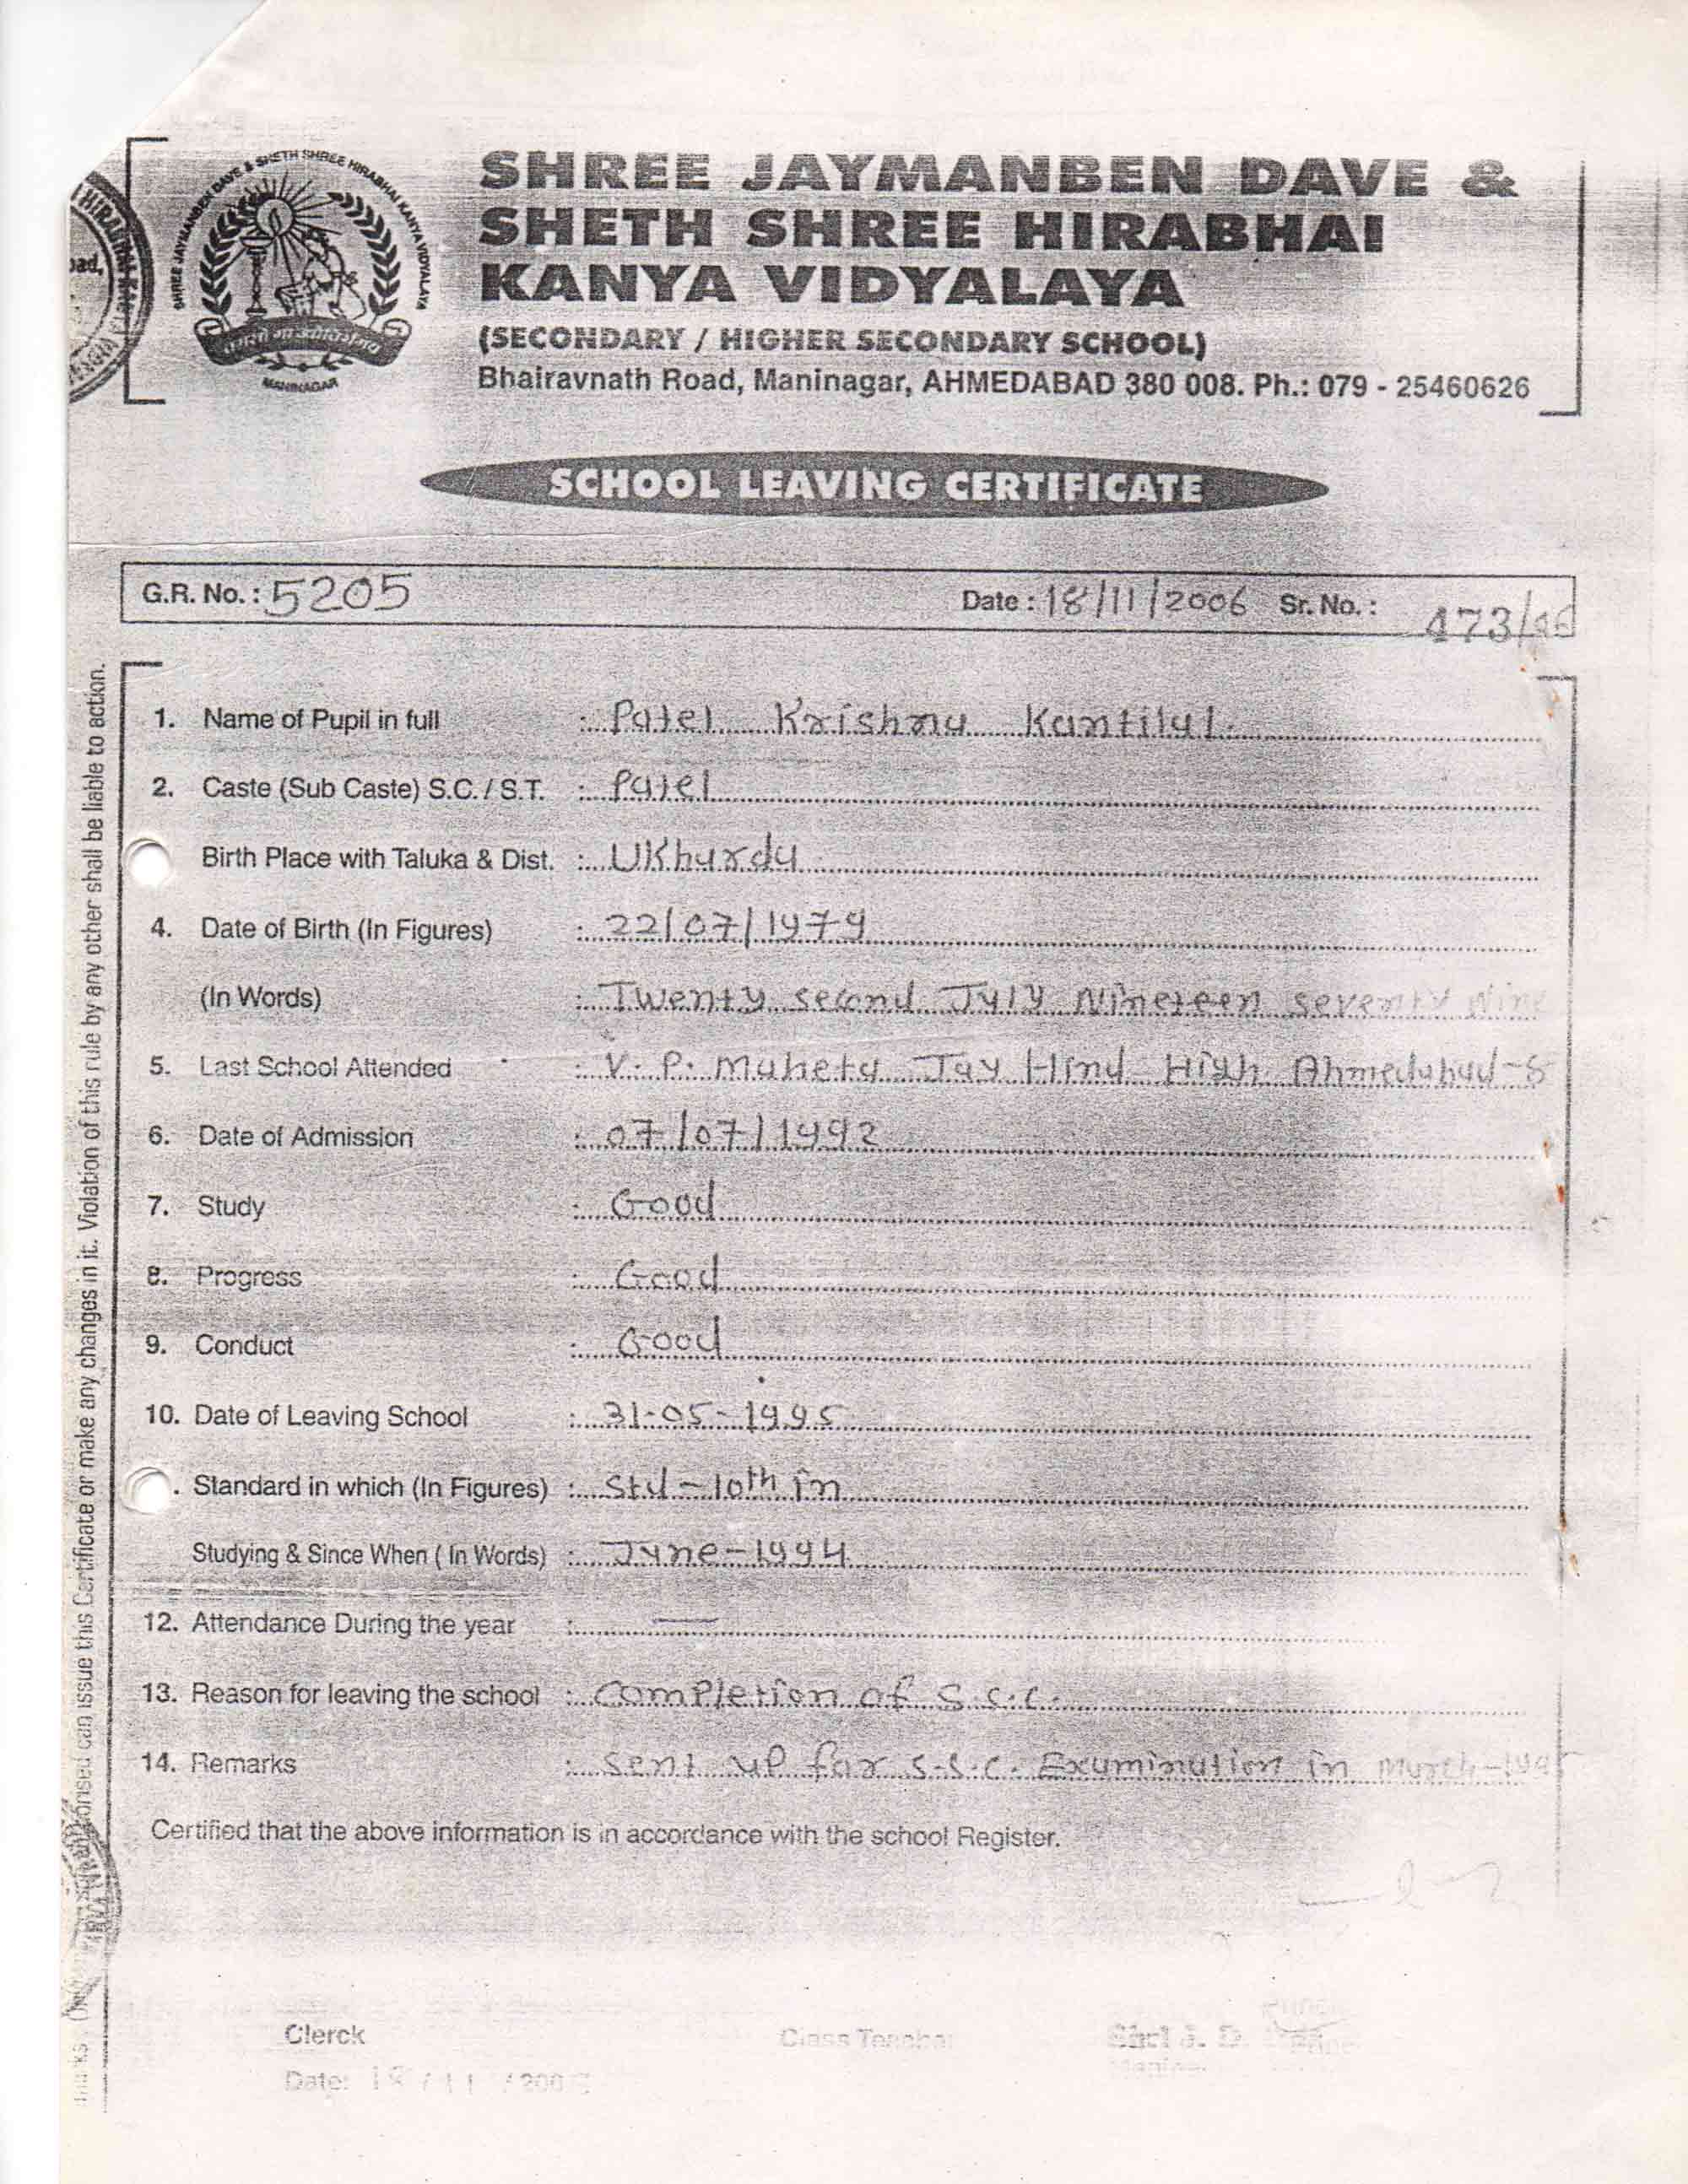 SHREE JAYMANBEN DAVE & SHETH SHREE HIRABHAI KANYA VIDYALAYA
MANINAGAR
SHREE JAYMANBEN DAVE &
SHETH SHREE HIRABHAI
KANYA VIDYALAYA
(SECONDARY / HIGHER SECONDARY SCHOOL)
Bhairavnath Road, Maninagar, AHMEDABAD 380 008. Ph.: 079 - 25460626
SCHOOL LEAVING CERTIFICATE
G.R. No. : 5205 Date : 18/11/2006 Sr. No. : 473/06
1. Name of Pupil in full : Patel Krishna Kantilal.
2. Caste (Sub Caste) S.C. / S.T. : Patel
Birth Place with Taluka & Dist. : Ukharda
4. Date of Birth (In Figures) : 22/07/1979
(In Words) : Twenty second July Nineteen seventy Nine
5. Last School Attended : V. P. Maheta Jay Hind High Ahmedabad-8
6. Date of Admission : 07/07/1992
7. Study : Good
8. Progress : Good
9. Conduct : Good
10. Date of Leaving School : 31-05-1995
. Standard in which (In Figures) : Std - 10th in
Studying & Since When ( In Words) : June-1994
12. Attendance During the year : —
13. Reason for leaving the school : Completion of S.C.C.
14. Remarks : Sent up for S.S.C. Examination in March-1995
Certified that the above information is in accordance with the school Register.
Clerck Class Teacher Shri J. D.
Date: 18/11/200
can issue this Certificate or make any changes in it. Violation of this rule by any other shall be liable to action.